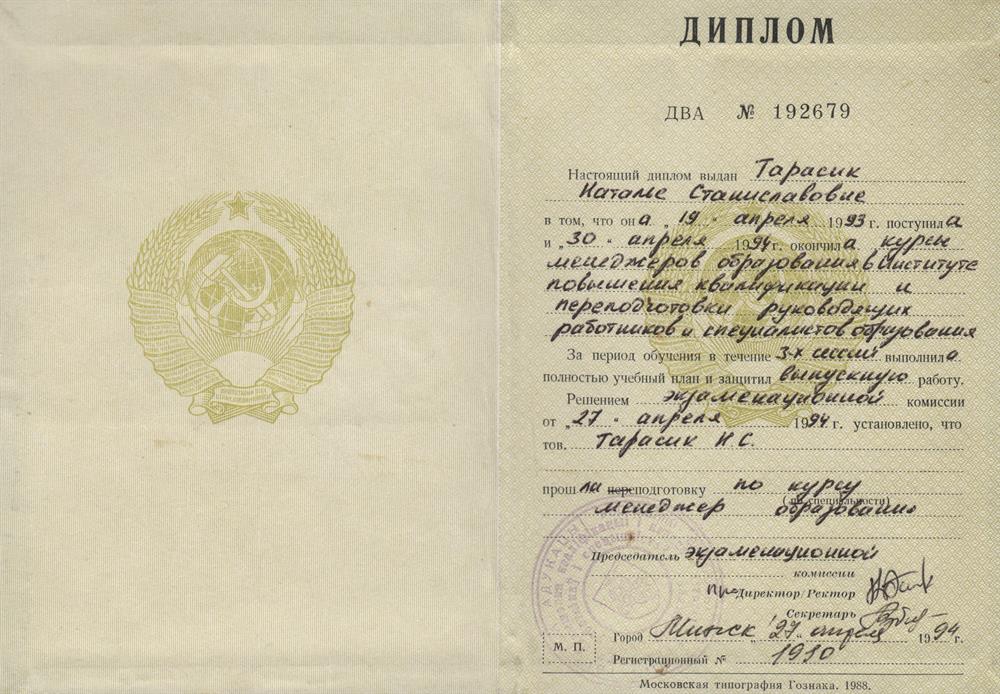 ДИПЛОМ
ДВА № 192679
Настоящий диплом выдан Тарасик
Наталье Станиславовне
в том, что она „19" апреля 1993 г. поступила
и „30" апреля 1994 г. окончила курсы
менеджеров образования в Институте
повышения квалификации и
переподготовки руководящих
работников и специалистов образования
За период обучения в течение 3-х сессий выполнила
полностью учебный план и защитил выпускную работу.
Решением экзаменационной комиссии
от „27" апреля 1994 г. установлено, что
тов. Тарасик Н.С.
прошла переподготовку по курсу
(по специальности)
менеджер образования
Председатель экзаменационной
комиссии
Директор/Ректор
Секретарь
Город Минск "27" апреля 1994 г.
М. П.
Регистрационный № 1910
Московская типография Гознака. 1988.